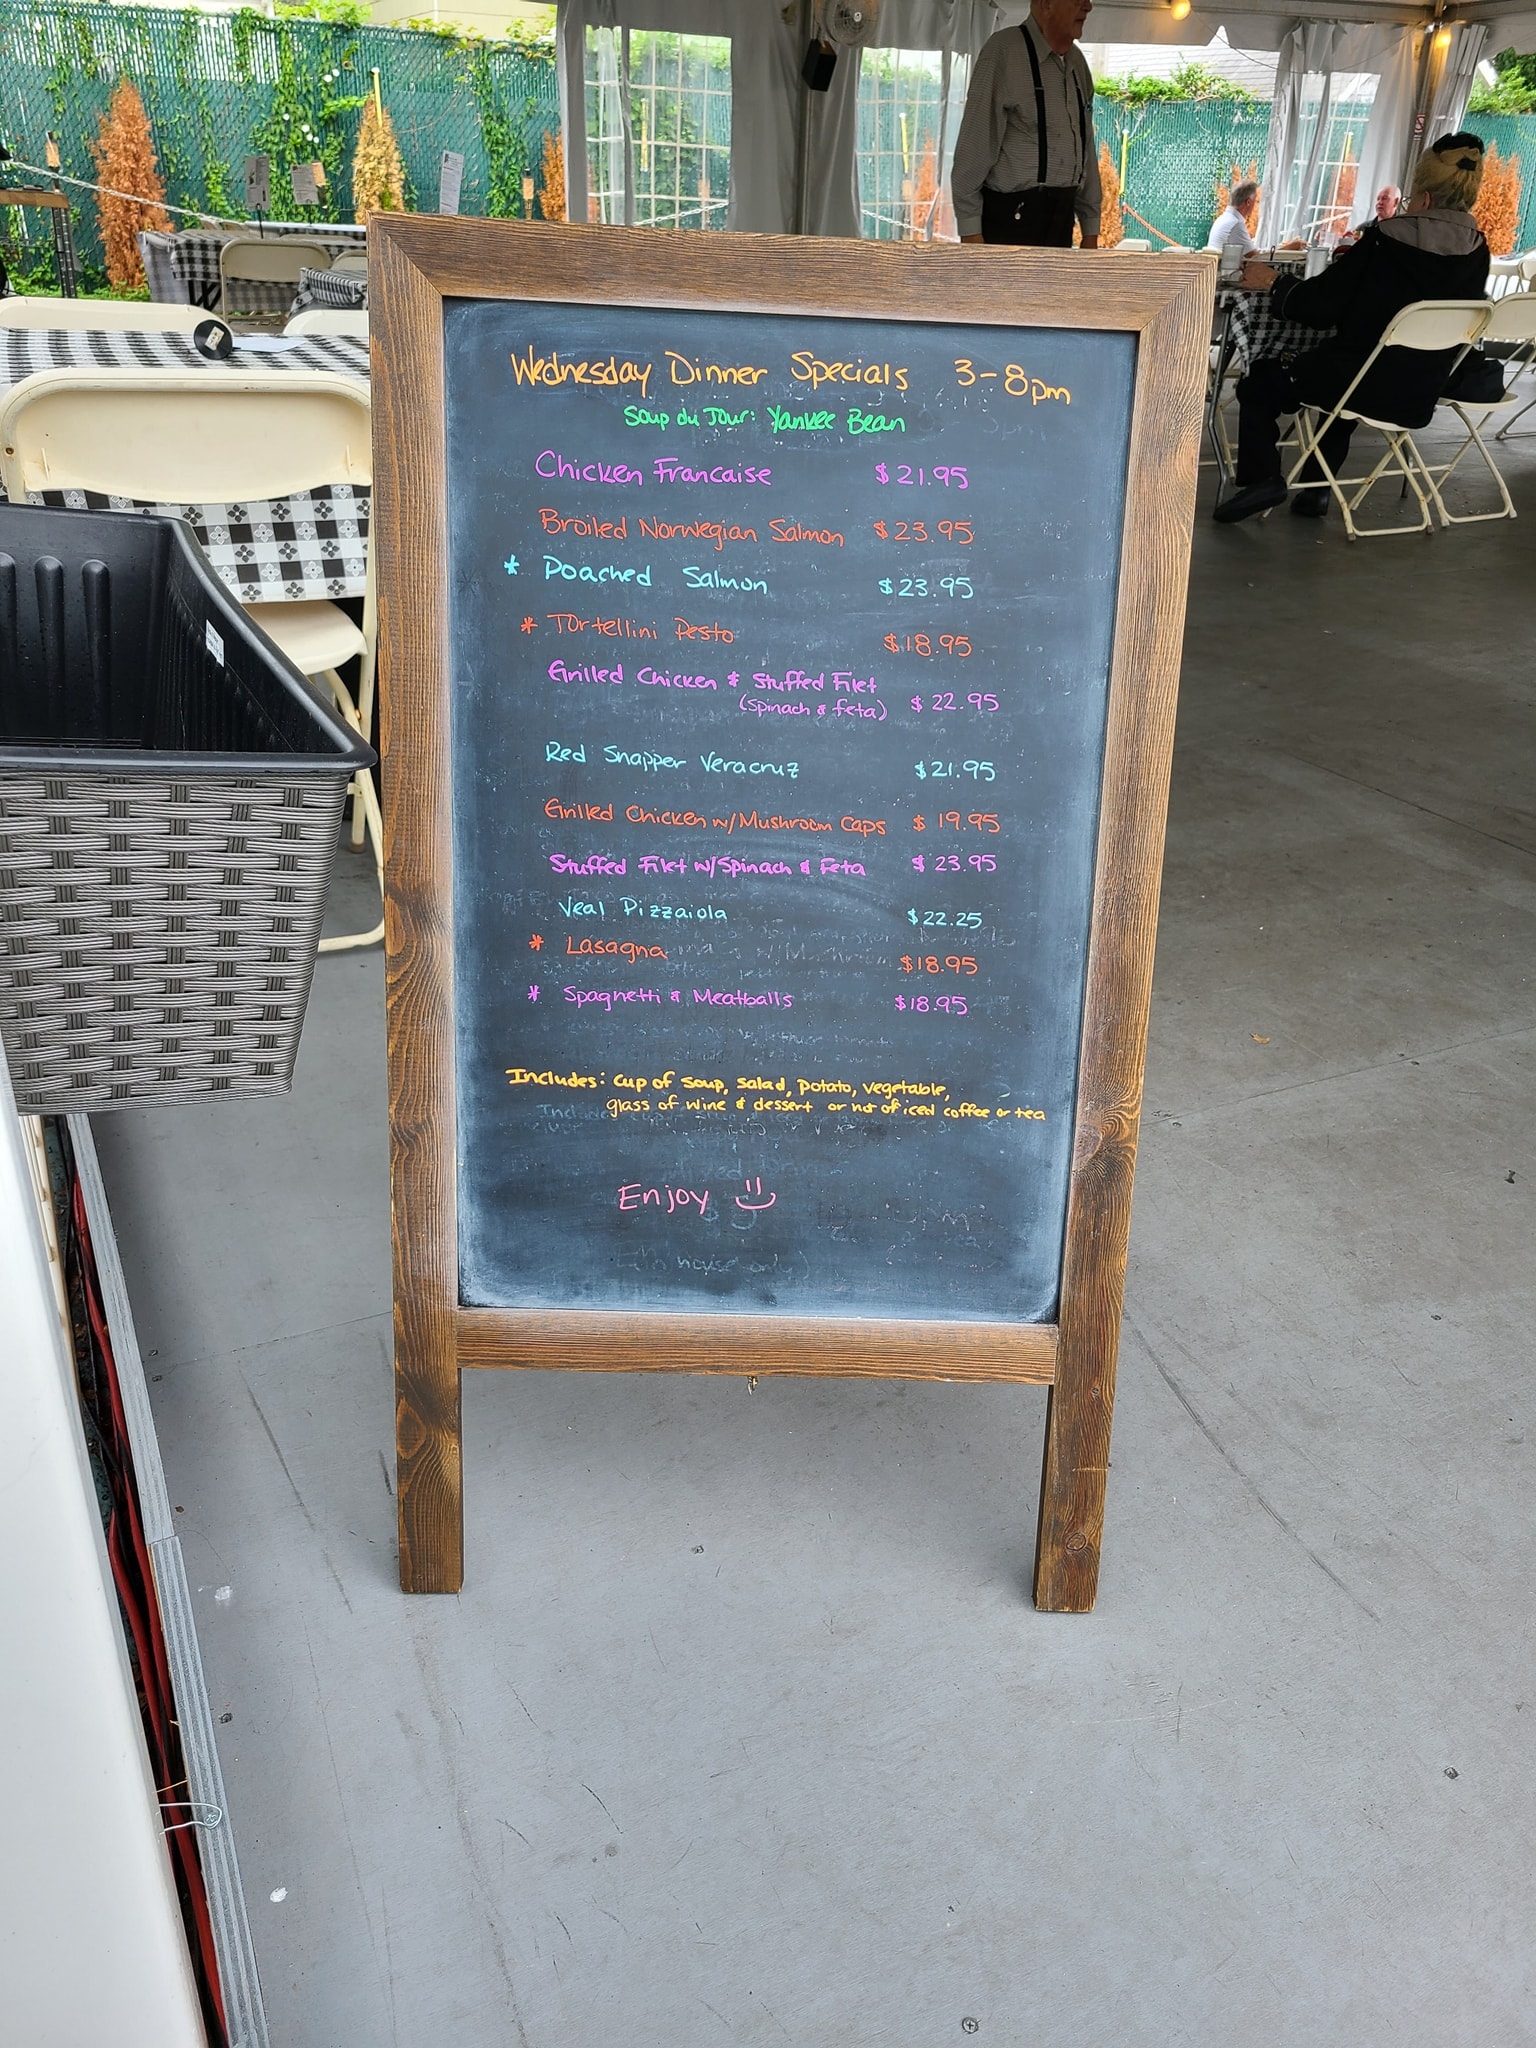 Wednesday Dinner Specials 3-8pm
Soup du Jour: Yankee Bean
Chicken Francaise $21.95
Broiled Norwegian Salmon $23.95
* Poached Salmon $23.95
* Tortellini Pesto $18.95
Grilled Chicken & Stuffed Filet
(Spinach & feta) $22.95
Red Snapper Veracruz $21.95
Grilled Chicken w/Mushroom Caps $19.95
Stuffed Filet w/Spinach & Feta $23.95
Veal Pizzaiola $22.25
* Lasagna $18.95
* Spaghetti & Meatballs $18.95
Includes: cup of soup, salad, potato, vegetable,
glass of wine & dessert or hot or iced coffee or tea
Enjoy
(In house only)